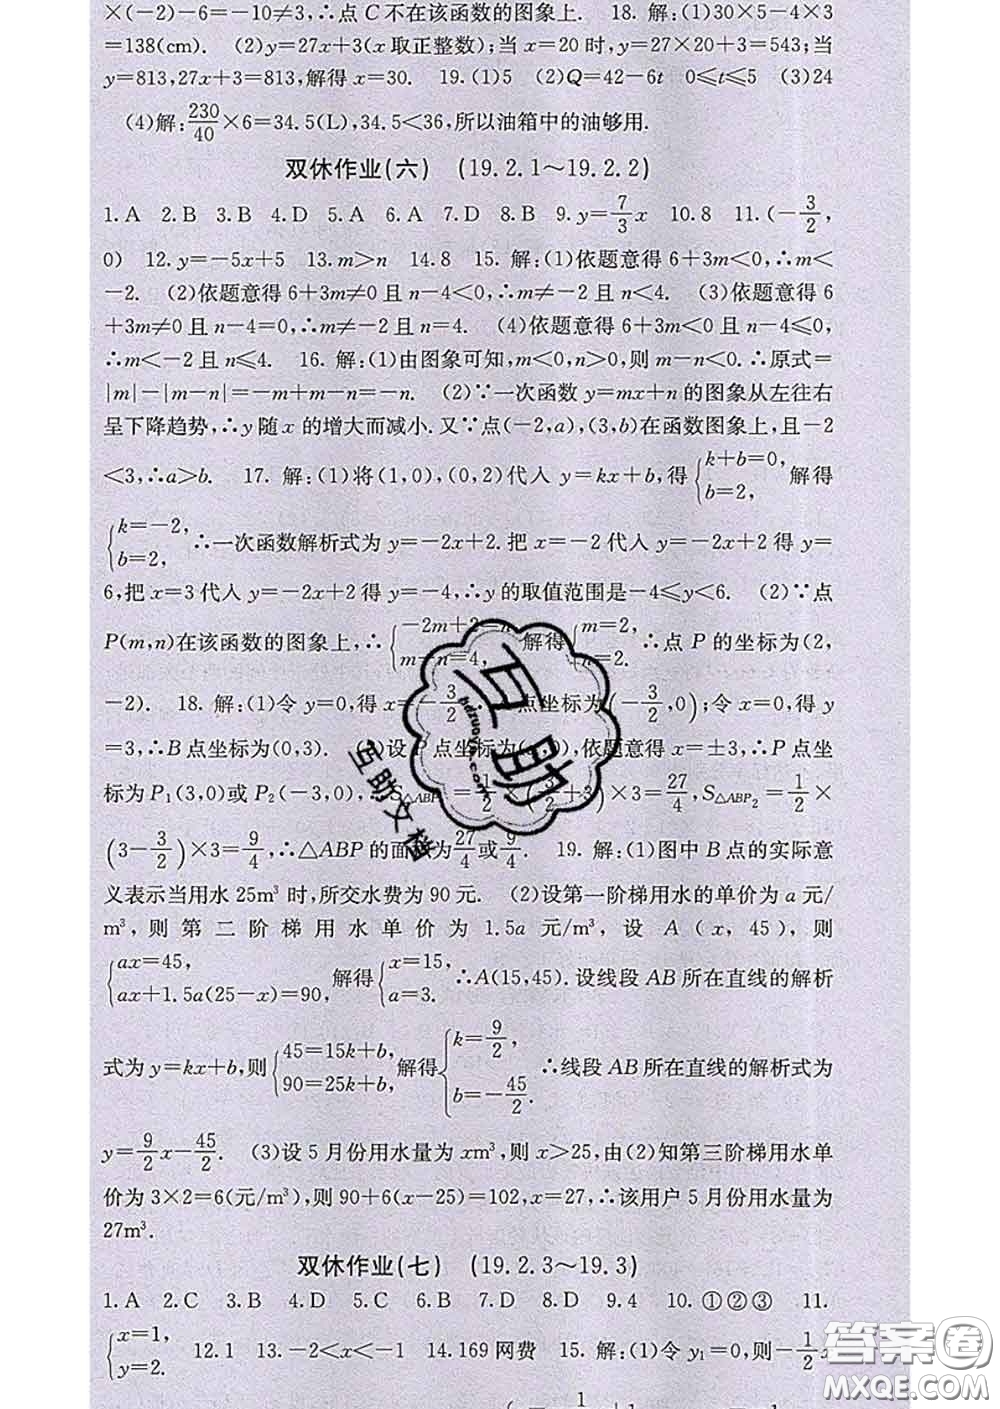 ×(−2)−6=−10≠3,∴点 C 不在该函数的图象上. 18. 解:(1)30×5−4×3
=138(cm). (2)y=27x+3(x 取正整数);当 x=20 时,y=27×20+3=543;当
y=813,27x+3=813,解得 x=30. 19.(1)5 (2)Q=42−6t 0≤t≤5 (3)24
(4)解:230/40×6=34.5(L),34.5<36,所以油箱中的油够用.
双休作业(六) (19.2.1～19.2.2)
1.A 2.B 3.B 4.D 5.A 6.A 7.D 8.B 9.y=7/3x 10.8 11.(−3/2,
0) 12.y=−5x+5 13.m>n 14.8 15. 解:(1)依题意得 6+3m<0,∴m<
−2. (2)依题意得 6+3m≠0 且 n−4<0,∴m≠−2 且 n<4. (3)依题意得 6
+3m≠0 且 n−4=0,∴m≠−2 且 n=4. (4)依题意得 6+3m<0 且 n−4≤0,
∴m<−2 且 n≤4. 16. 解:(1)由图象可知,m<0,n>0,则 m−n<0.∴原式=
|m|−|m−n|=−m+m−n=−n. (2)∵一次函数 y=mx+n 的图象从左往右
呈下降趋势,∴y 随 x 的增大而减小.又∵点(−2,a),(3,b)在函数图象上,且−2
<3,∴a>b. 17. 解:(1)将(1,0),(0,2)代入 y=kx+b,得{k+b=0, b=2, 解得
{k=−2, b=2, ∴一次函数解析式为 y=−2x+2.把 x=−2 代入 y=−2x+2 得 y=
6,把 x=3 代入 y=−2x+2 得 y=−4,∴y 的取值范围是−4≤y<6. (2)∵点
P(m,n)在该函数的图象上,∴{−2m+2=n, m−n=4, 解得{m=2, n=−2. ∴点 P 的坐标为(2,
−2). 18. 解:(1)令 y=0,得 x=−3/2 点坐标为(−3/2,0);令 x=0,得 y
=3,∴B 点坐标为(0,3). 设 P 点坐标为 依题意得 x=±3,∴P 点坐
标为 P₁(3,0)或 P₂(−3,0), S△ABP₁=1/2×(3/2+3)×3=27/4,S△ABP₂=1/2×
(3−3/2)×3=9/4,∴△ABP 的面积为27/4或9/4. 19. 解:(1)图中 B 点的实际意
义表示当用水 25m³ 时,所交水费为 90 元. (2)设第一阶梯用水的单价为 a 元/
m³,则第二阶梯用水单价为 1.5a 元/m³,设 A(x,45),则
{ax=45, ax+1.5a(25−x)=90, 解得{x=15, a=3. ∴A(15,45).设线段 AB 所在直线的解析
式为 y=kx+b,则{45=15k+b, 90=25k+b, 解得{k=9/2, b=−45/2. ∴线段 AB 所在直线的解析式为
y=9/2x−45/2. (3)设 5 月份用水量为 xm³,则 x>25,由(2)知第三阶梯用水单
价为 3×2=6(元/m³),则 90+6(x−25)=102,x=27,∴该用户 5 月份用水量为
27m³.
双休作业(七) (19.2.3～19.3)
1.A 2.C 3.B 4.D 5.C 6.B 7.D 8.D 9.4 10.①②③ 11.
{x=1, y=2. 12.1 13.−2<x<−1 14.169 网费 15. 解:(1)令 y₁=0,则−1/2x
互助
互助文档
答案圈
MXQE.COM